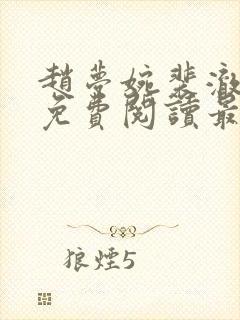 趙夢婉裴澈
免費閱讀最
狼煙5